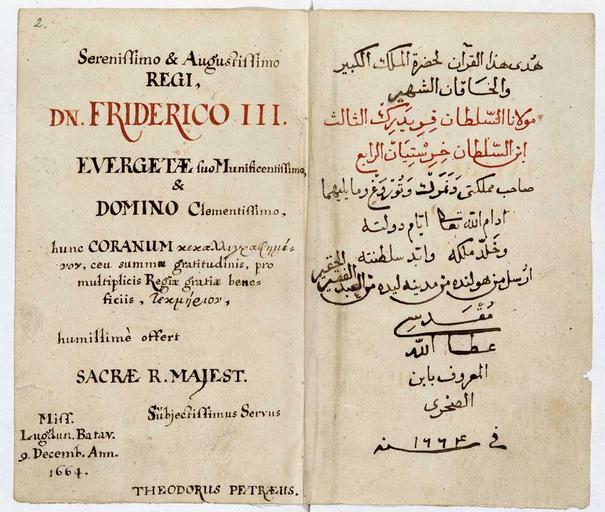 2.
Serenissimo & Augustissimo
REGI,
DN. FRIDERICO III.
EVERGETÆ suo Munificentissimo,
&
DOMINO Clementissimo,
hunc CORANUM κεκαλλιγραφημέ-
νον, ceu summæ gratitudinis, pro
multiplicis Regiæ gratiæ bene-
ficiis, τεκμήριον,
humillimè offert
SACRÆ R. MAJEST.
Subjectissimus Servus
Miss.
Lugdun. Batav.
9. Decemb. Ann.
1664.
THEODORUS PETRÆUS.
هدى هذا القرآن لحضرة الملك الكبير
والخاقان الشهير
مولانا السلطان فريدرك الثالث
ابن السلطان خرستيان الرابع
صاحب مملكتي دنمرك ونوروغ وما يليهما
ادام الله تعا ايام دولته
وخلد ملكه وابد سلطنته
ارسل من هولنده من مدينه ليده من العبد الفقير الحقير
مقدسي
عطا الله
المعروف بابن
الصخرى
في سنه ١٦٦٤